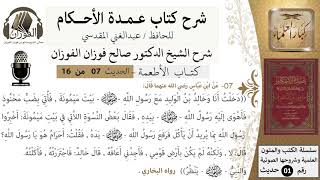 شرح كتاب عمدة الأحكام
للحافظ / عبدالغني المقدسي
شرح الشيخ الدكتور صالح فوزان الفوزان
كتاب الأطعمة - الحديث 07 من 16
الفوزان
07- عن ابن عباس رضي الله عنهما قال:
((دخلت أنا وخالد بن الوليد مع رسول الله ﷺ بيت ميمونة، فأتي بضب محنوذ
فأهوى إليه رسول الله ﷺ بيده، فقال بعض النسوة اللاتي في بيت ميمونة: أخبروا
رسول الله بما يريد أن يأكل فرفع رسول الله ﷺ يده، فقلت: أحرام هو يا رسول الله؟
قال: لا، ولكنه لم يكن بأرض قومي، فأجدني أعافه، قال خالد: فاجتررته، فأكلته
والنبي ﷺ ينظر)) رواه البخاري
سلسلة الكتب والمتون
العلمية وشروحها الصوتية
رقم 01 حديث